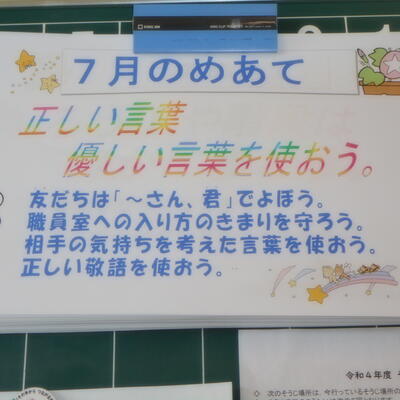 7月のめあて
正しい言葉
優しい言葉を使おう。
友だちは「~さん、君」でよぼう。
職員室への入り方のきまりを守ろう。
相手の気持ちを考えた言葉を使おう。
正しい敬語を使おう。
令和4年度
◇ 次のそうじ場所は、今行っているそうじ場所